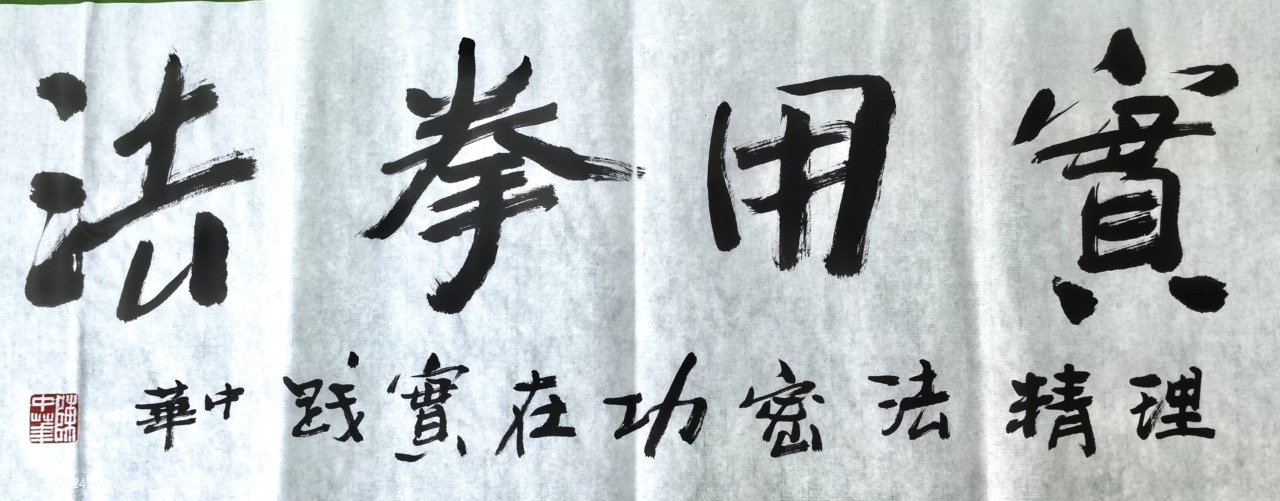 實用拳法
理精法密功在實践中華
陳中華
2024